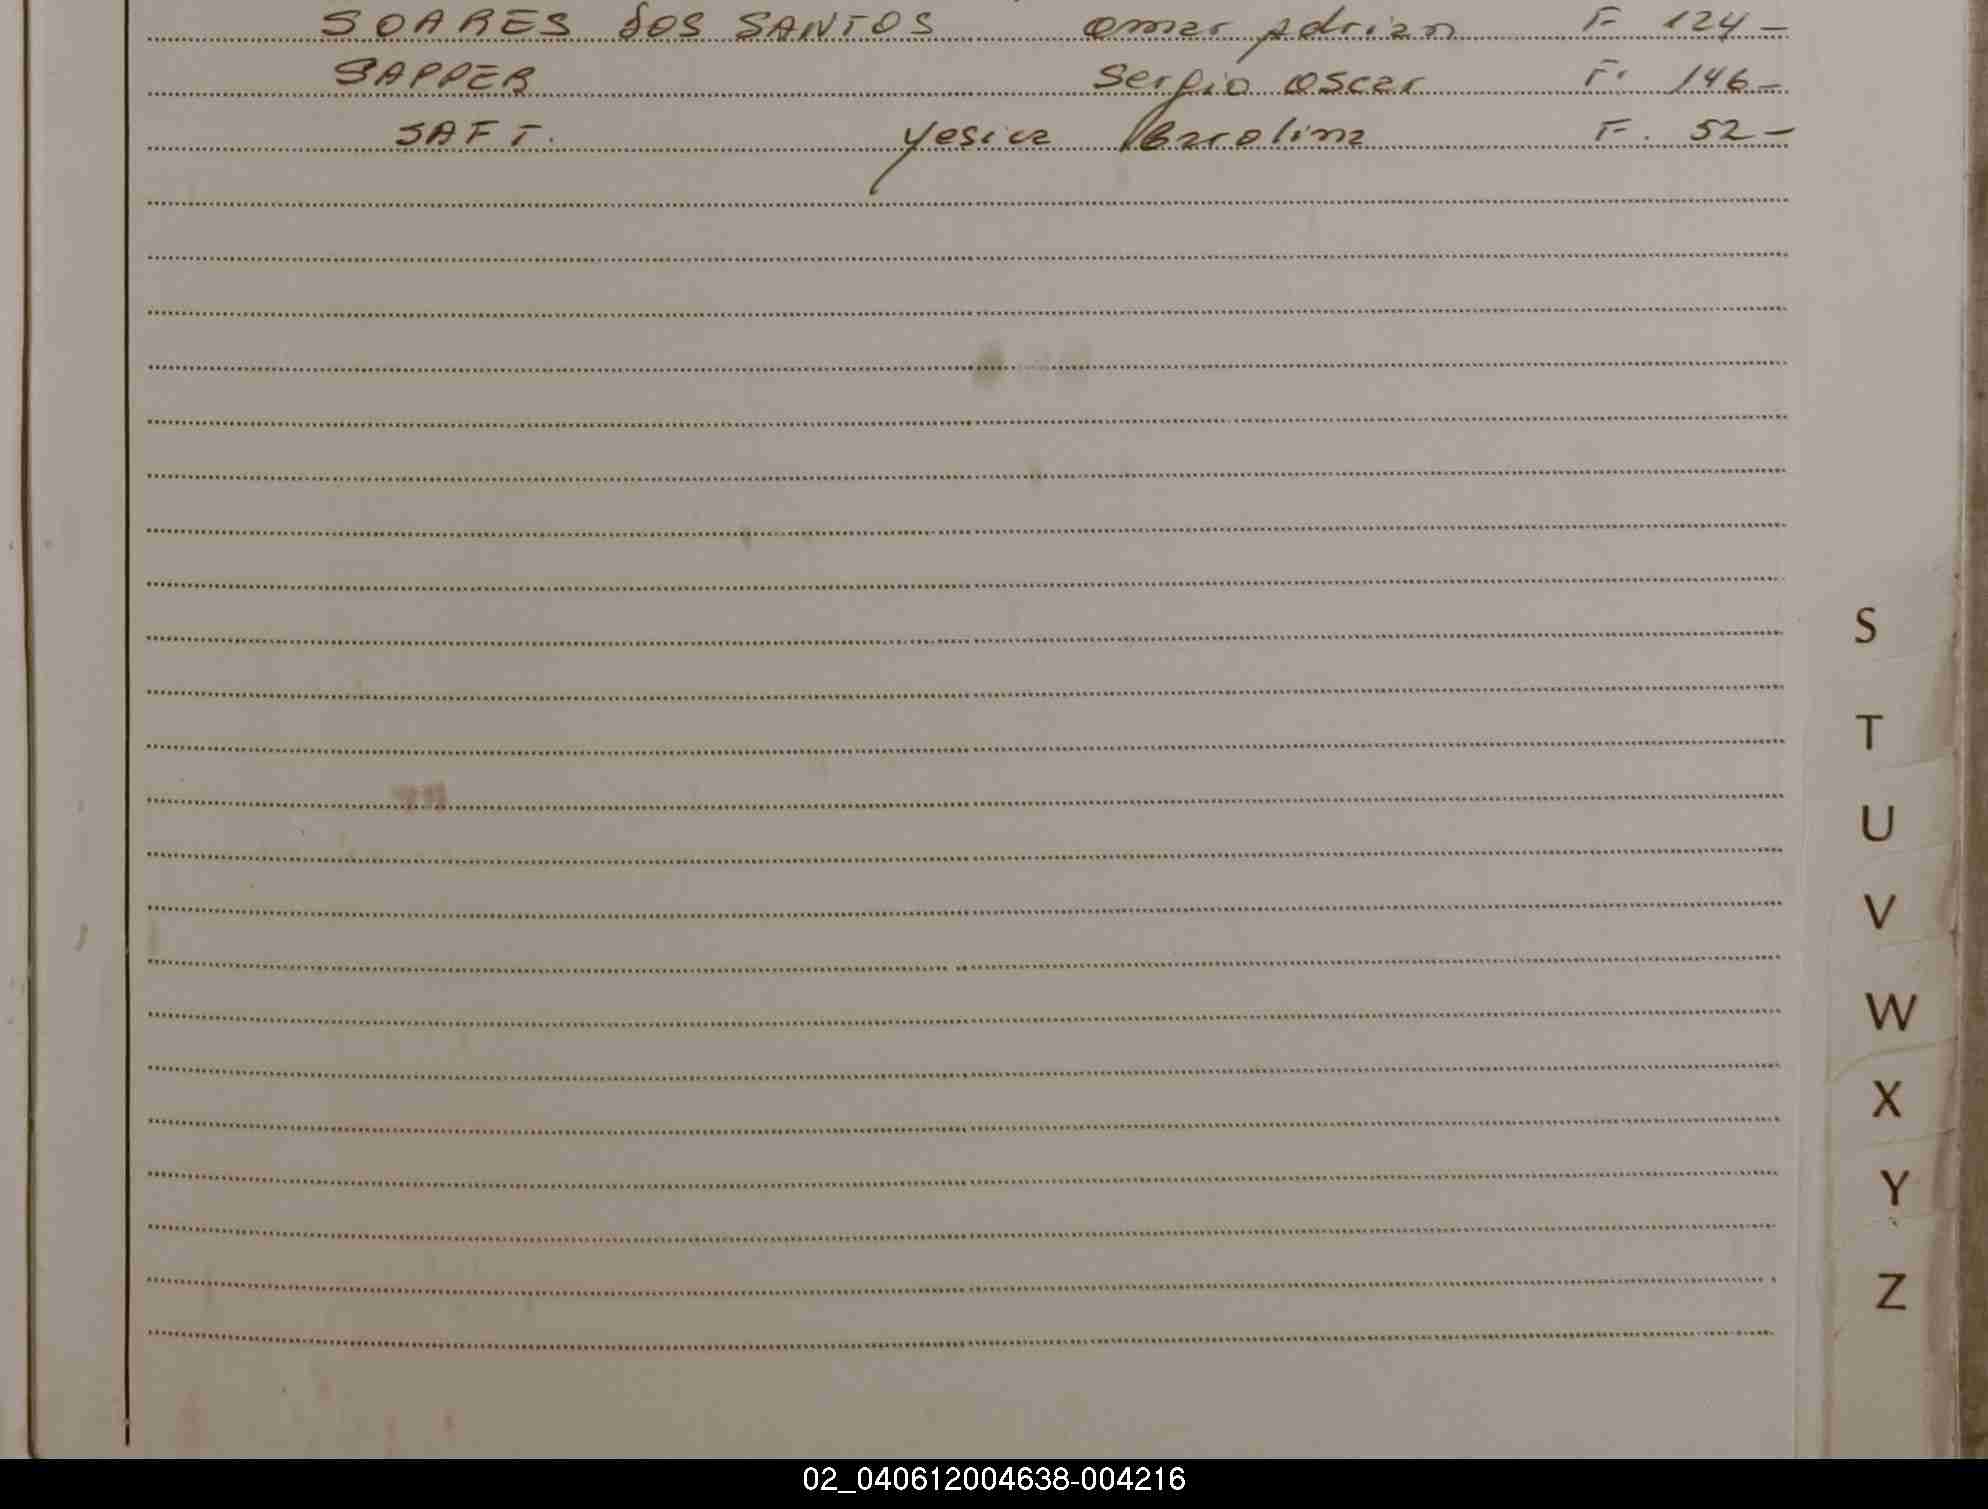 SOARES dOS SANTOS Omar Adrian F. 124-
SAPPER Sergio Oscar F. 146-
SAFT. Yesica Carolina F. 52-
S
T
U
V
W
X
Y
Z
02_040612004638-004216